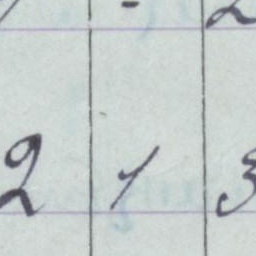 - 2
2 1 3